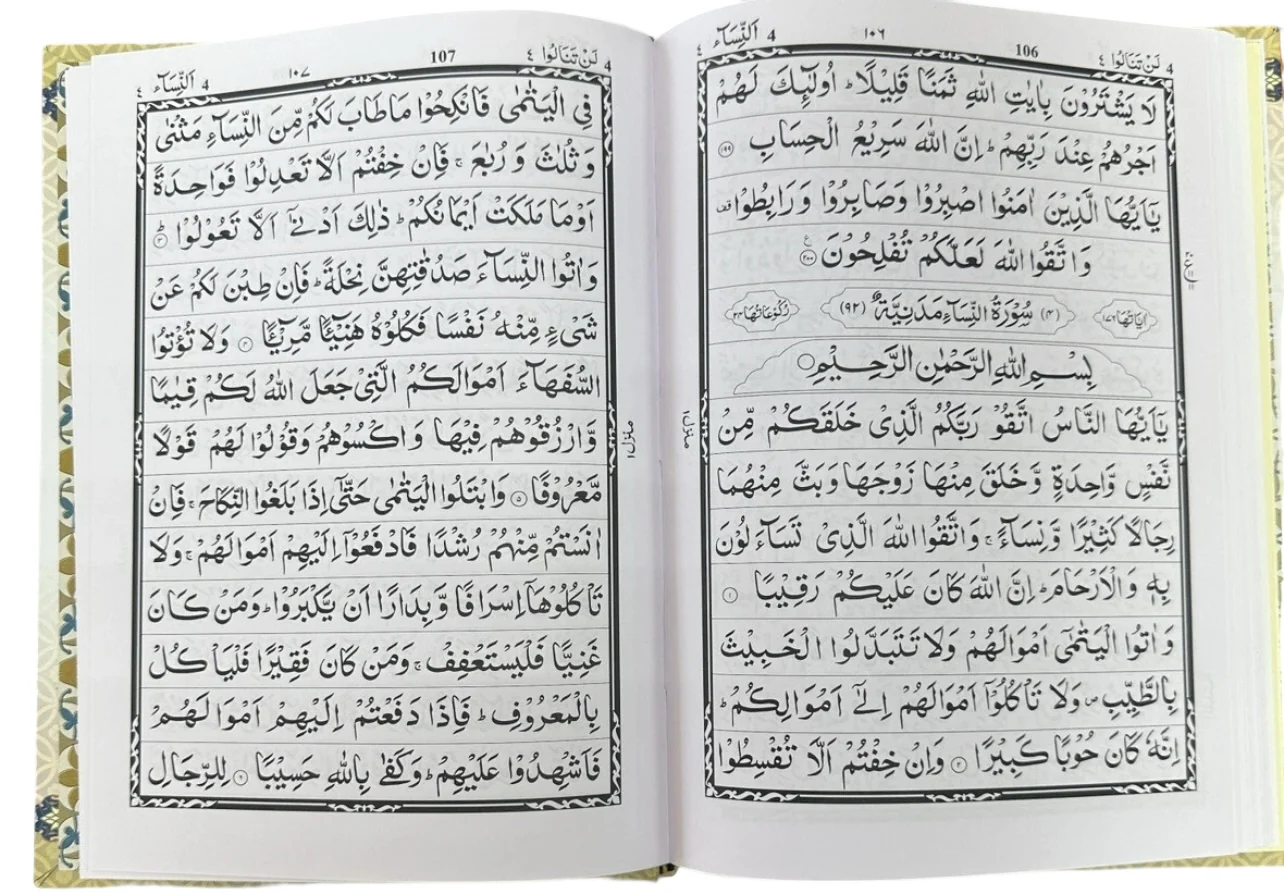 لَنْ تَنَالُوا ٤ 106 ١٠٦ 4 اَلنِّسَآء ٤
لَا يَشْتَرُوْنَ بِاٰيٰتِ اللّٰهِ ثَمَنًا قَلِيْلًا ؕ اُولٰٓئِكَ لَهُمْ
اَجْرُهُمْ عِنْدَ رَبِّهِمْ ؕ اِنَّ اللّٰهَ سَرِيْعُ الْحِسَابِ ۝۱۹۹
يٰۤاَيُّهَا الَّذِيْنَ اٰمَنُوا اصْبِرُوْا وَصَابِرُوْا وَرَابِطُوْا قف
وَاتَّقُوا اللّٰهَ لَعَلَّكُمْ تُفْلِحُوْنَ ۝۲۰۰ ع
اٰيَاتُهَا ۱۷٦ (۴) سُوْرَةُ النِّسَآءِ مَدَنِيَّةٌ (۹۲) رُكُوْعَاتُهَا ۲۴
بِسْمِ اللّٰهِ الرَّحْمٰنِ الرَّحِيْمِ ۝
يٰۤاَيُّهَا النَّاسُ اتَّقُوْا رَبَّكُمُ الَّذِيْ خَلَقَكُمْ مِّنْ
نَّفْسٍ وَّاحِدَةٍ وَّخَلَقَ مِنْهَا زَوْجَهَا وَبَثَّ مِنْهُمَا
رِجَالًا كَثِيْرًا وَّنِسَآءً ۚ وَاتَّقُوا اللّٰهَ الَّذِيْ تَسَآءَلُوْنَ
بِهٖ وَالْاَرْحَامَ ؕ اِنَّ اللّٰهَ كَانَ عَلَيْكُمْ رَقِيْبًا ۝۱
وَاٰتُوا الْيَتٰمٰۤى اَمْوَالَهُمْ وَلَا تَتَبَدَّلُوا الْخَبِيْثَ
بِالطَّيِّبِ ۪ وَلَا تَاْكُلُوْۤا اَمْوَالَهُمْ اِلٰۤى اَمْوَالِكُمْ ؕ
اِنَّهٗ كَانَ حُوْبًا كَبِيْرًا ۝۲ وَاِنْ خِفْتُمْ اَلَّا تُقْسِطُوْا
منزل ١
لَنْ تَنَالُوا ٤ 107 ١٠٧ 4 اَلنِّسَآء ٤
فِي الْيَتٰمٰى فَانْكِحُوْا مَا طَابَ لَكُمْ مِّنَ النِّسَآءِ مَثْنٰى
وَثُلٰثَ وَرُبٰعَ ۚ فَاِنْ خِفْتُمْ اَلَّا تَعْدِلُوْا فَوَاحِدَةً
اَوْ مَا مَلَكَتْ اَيْمَانُكُمْ ؕ ذٰلِكَ اَدْنٰۤى اَلَّا تَعُوْلُوْا ۝۳ ؕ
وَاٰتُوا النِّسَآءَ صَدُقٰتِهِنَّ نِحْلَةً ؕ فَاِنْ طِبْنَ لَكُمْ عَنْ
شَيْءٍ مِّنْهُ نَفْسًا فَكُلُوْهُ هَنِيْٓئًا مَّرِيْٓئًا ۝۴ وَلَا تُؤْتُوا
السُّفَهَآءَ اَمْوَالَكُمُ الَّتِيْ جَعَلَ اللّٰهُ لَكُمْ قِيٰمًا
وَّارْزُقُوْهُمْ فِيْهَا وَاكْسُوْهُمْ وَقُوْلُوْا لَهُمْ قَوْلًا
مَّعْرُوْفًا ۝۵ وَابْتَلُوا الْيَتٰمٰى حَتّٰۤى اِذَا بَلَغُوا النِّكَاحَ ۚ فَاِنْ
اٰنَسْتُمْ مِّنْهُمْ رُشْدًا فَادْفَعُوْۤا اِلَيْهِمْ اَمْوَالَهُمْ ۚ وَلَا
تَاْكُلُوْهَاۤ اِسْرَافًا وَّبِدَارًا اَنْ يَّكْبَرُوْا ؕ وَمَنْ كَانَ
غَنِيًّا فَلْيَسْتَعْفِفْ ۚ وَمَنْ كَانَ فَقِيْرًا فَلْيَاْكُلْ
بِالْمَعْرُوْفِ ؕ فَاِذَا دَفَعْتُمْ اِلَيْهِمْ اَمْوَالَهُمْ
فَاَشْهِدُوْا عَلَيْهِمْ ؕ وَكَفٰى بِاللّٰهِ حَسِيْبًا ۝۶ لِلرِّجَالِ
منزل ١